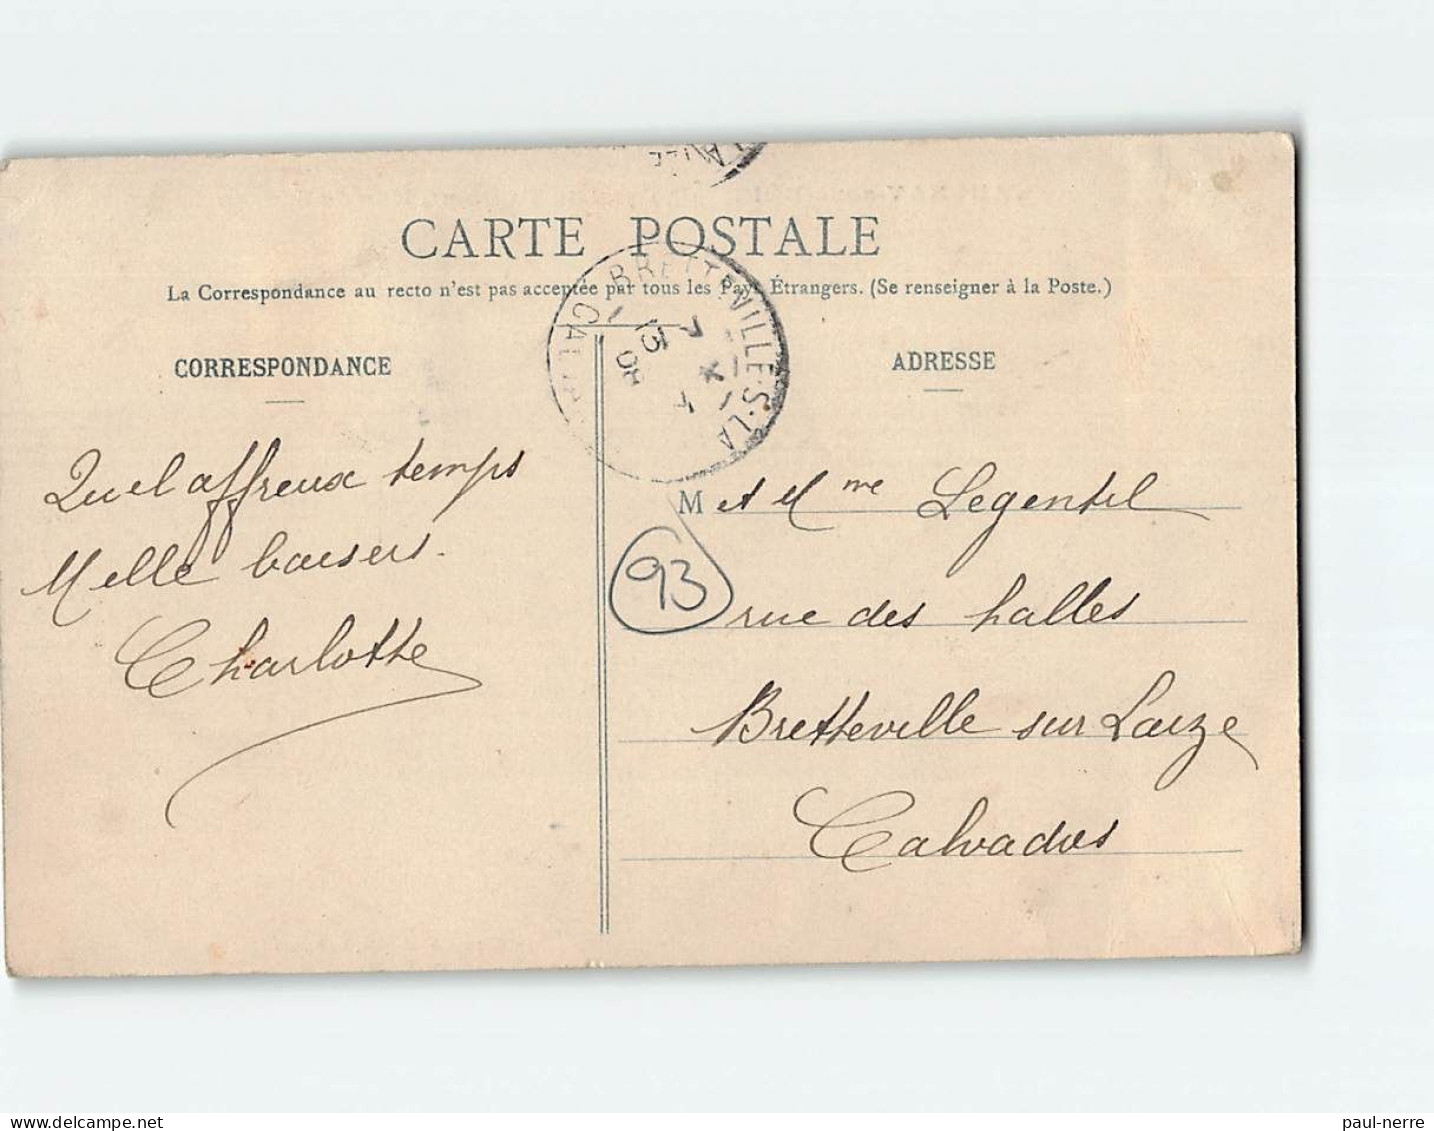 CARTE POSTALE
La Correspondance au recto n'est pas acceptée par tous les Pays Étrangers. (Se renseigner à la Poste.)
BRETTEVILLE-S-LA
CAL
13
CORRESPONDANCE
ADRESSE
Quel affreux temps
Mille baisers.
Charlotte
M et Mme Legentil
93
rue des halles
Bretteville sur Laize
Calvados
delcampe.net
paul-nerre